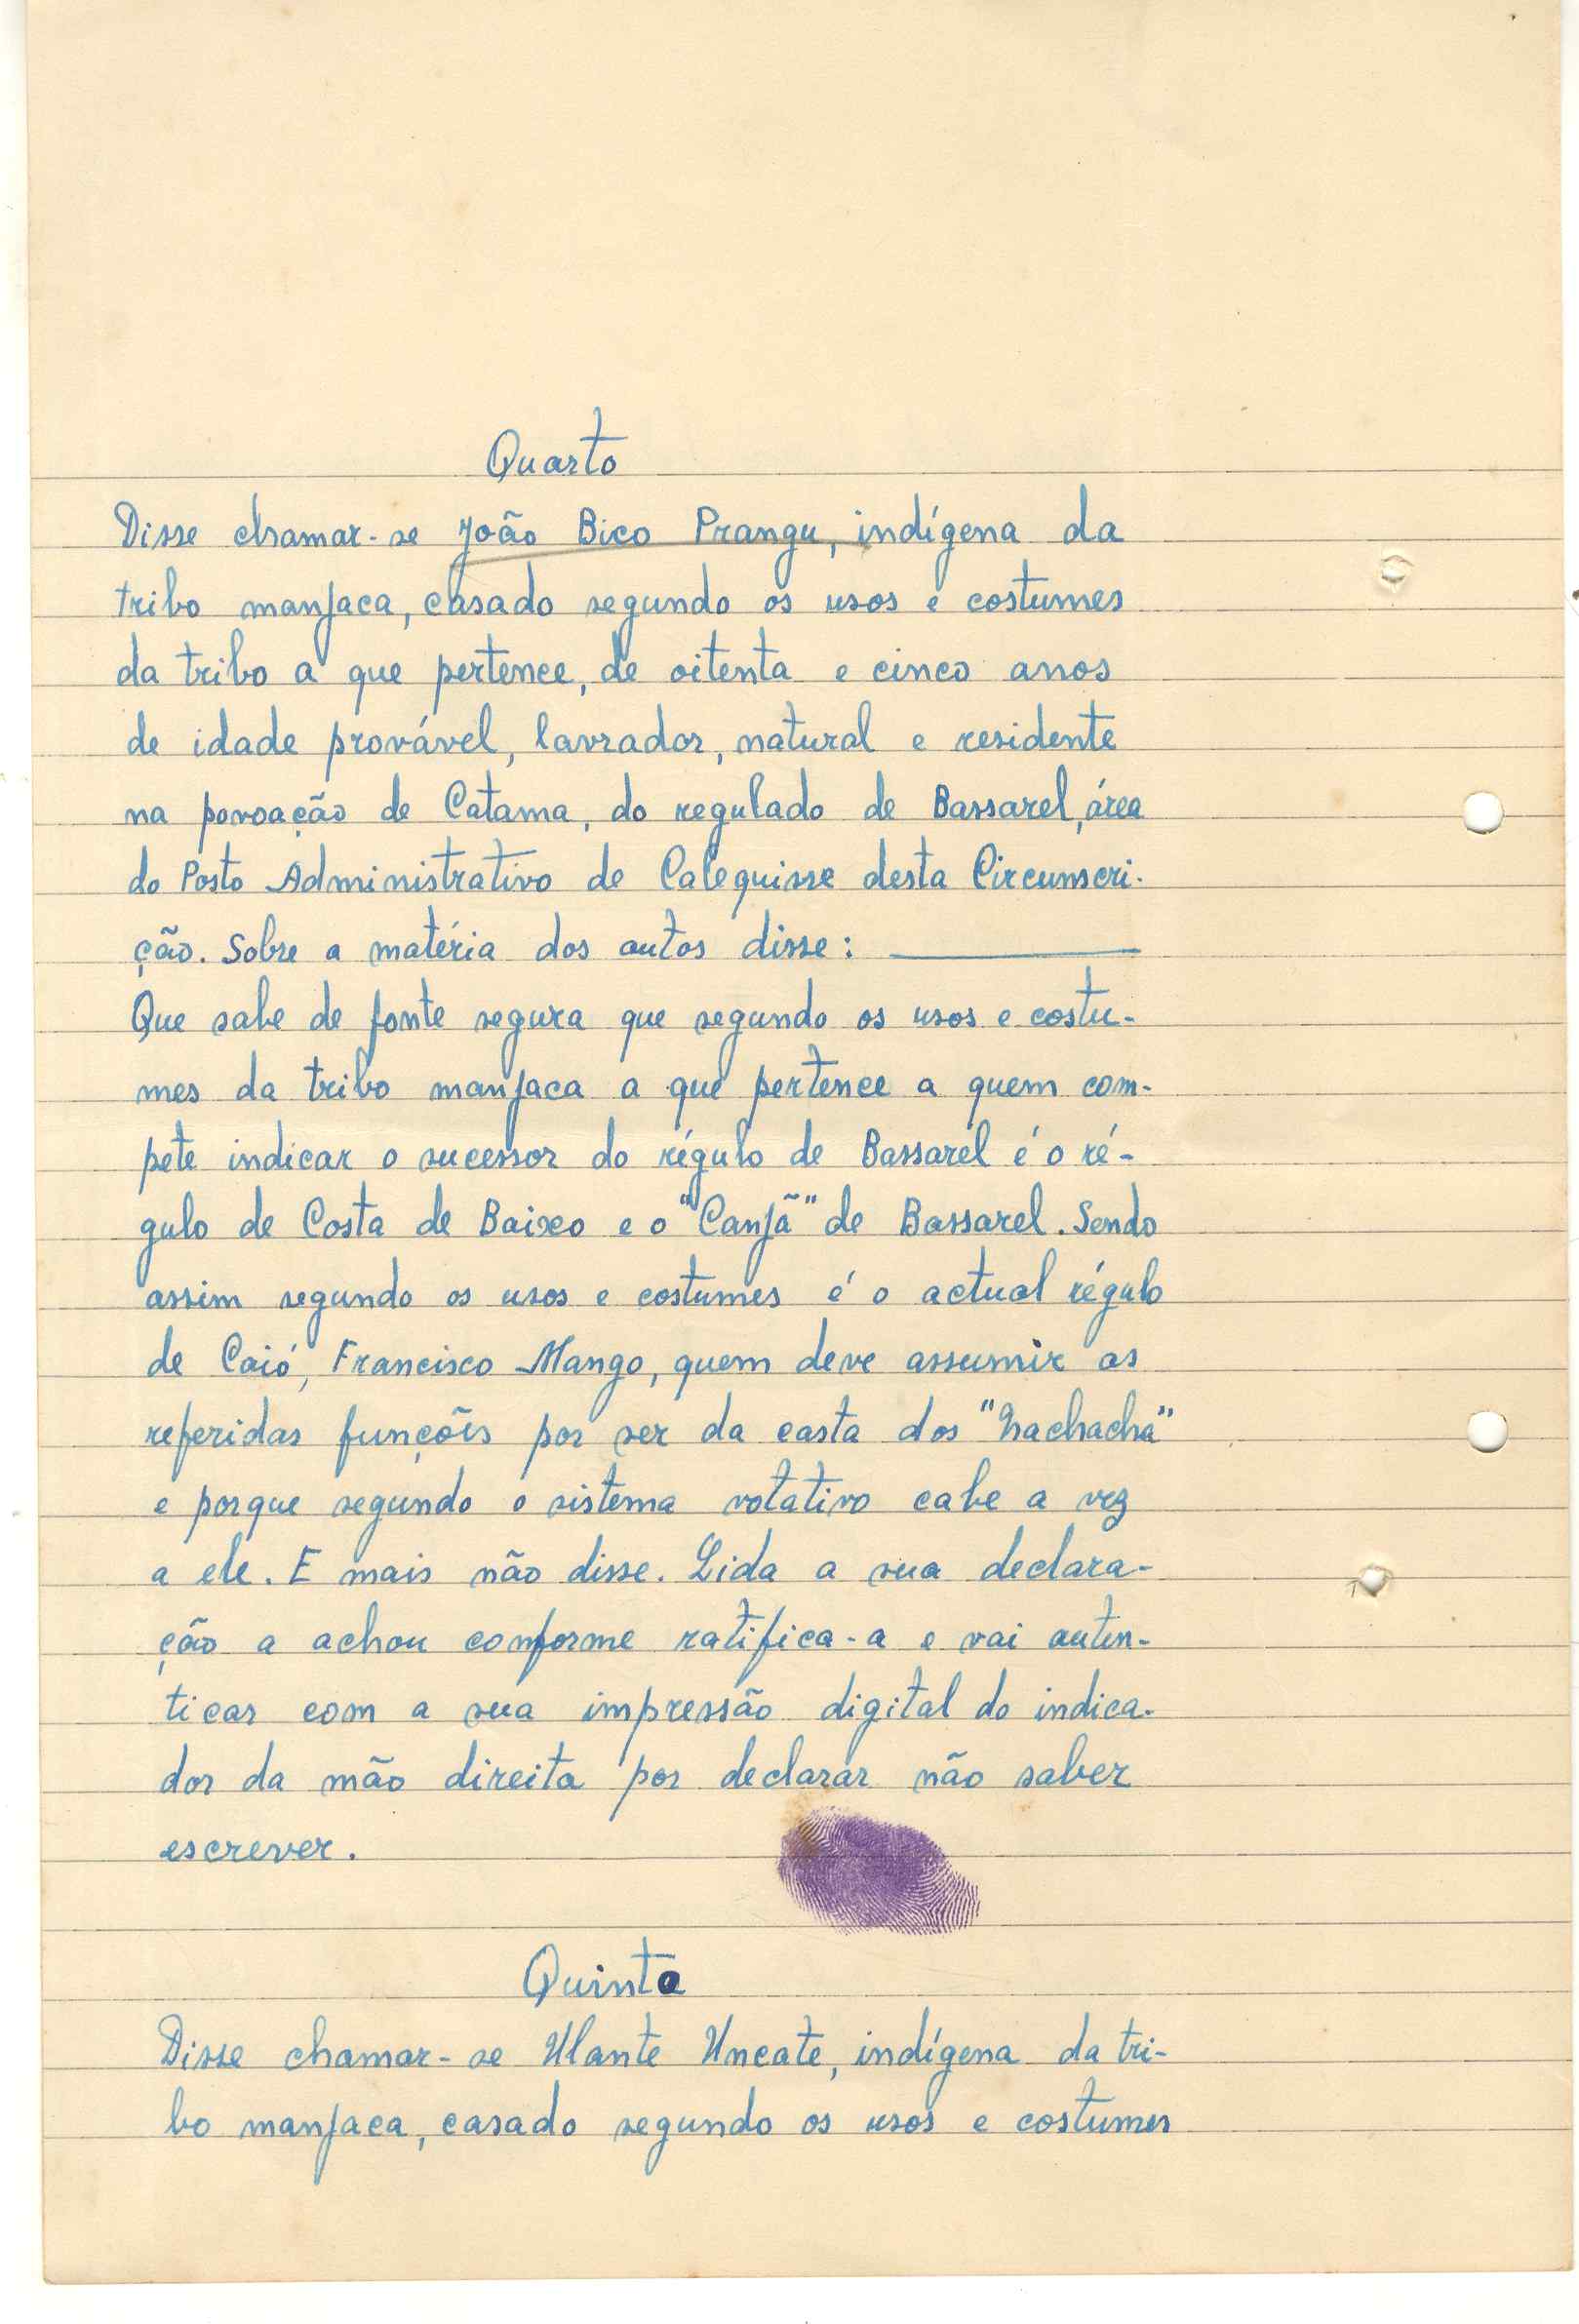 Quarto
Disse chamar-se João Bico Prangu, indígena da
tribo manjaca, casado segundo os usos e costumes
da tribo a que pertence, de oitenta e cinco anos
de idade provável, lavrador, natural e residente
na povoação de Catama, do regulado de Bassarel, área
do Posto Administrativo de Calequisse desta Circunscri-
ção. Sobre a matéria dos autos disse:
Que sabe de fonte segura que segundo os usos e costu-
mes da tribo manjaca a que pertence a quem com-
pete indicar o sucessor do régulo de Bassarel é o ré-
gulo de Costa de Baixo e o "Canjã" de Bassarel. Sendo
assim segundo os usos e costumes é o actual régulo
de Caió, Francisco Mango, quem deve assumir as
referidas funçõis por ser da casta dos "Nachachá"
e porque segundo o sistema rotativo cabe a vez
a ele. E mais não disse. Lida a sua declara-
ção a achou conforme ratifica-a e vai autên-
ticar com a sua impressão digital do indica-
dor da mão direita por declarar não saber
escrever.
Quinta
Disse chamar-se Ulante Uncate, indígena da tri-
bo manjaca, casado segundo os usos e costumes